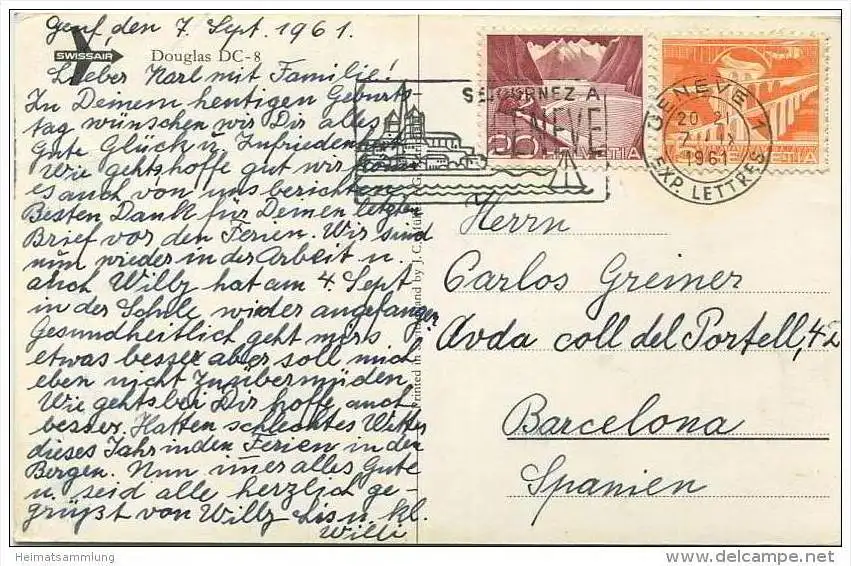 Genf, den 7. Sept. 1961.
SWISSAIR
Douglas DC-8
Lieber Karl mit Familie!
In Deinem heutigen Geburts-
tag wünschen wir Dir alles
Gute Glück u. Zufriedenheit
Wie gehts, hoffe gut wir können
es auch von uns berichten.
Besten Dank für Deinen letzten
Brief vor den Ferien. Wir sind
nun wieder in der Arbeit u.
auch Willy hat am 4. Sept
in der Schule wieder angefangen
Gesundheitlich geht mirs
etwas besser aber soll mich
eben nicht zu übermüden
Wie gehts bei Dir hoffe auch
besser. Hatten schlechtes Wetter
dieses Jahr in den Ferien in den
Bergen. Nun imer alles Gute
u. seid alle herzlich ge-
grüßt von Willy Lis u. kl.
Willi
Printed in by J. C.
SEJOURNEZ A
GENEVE
HELVETIA
HELVETIA
GENEVE 1
20-21
7. IX
1961
EXP. LETTRES
Herrn
Carlos Greiner
Avda coll del Portell, 42
Barcelona
Spanien
Heimatsammlung
delcampe.net